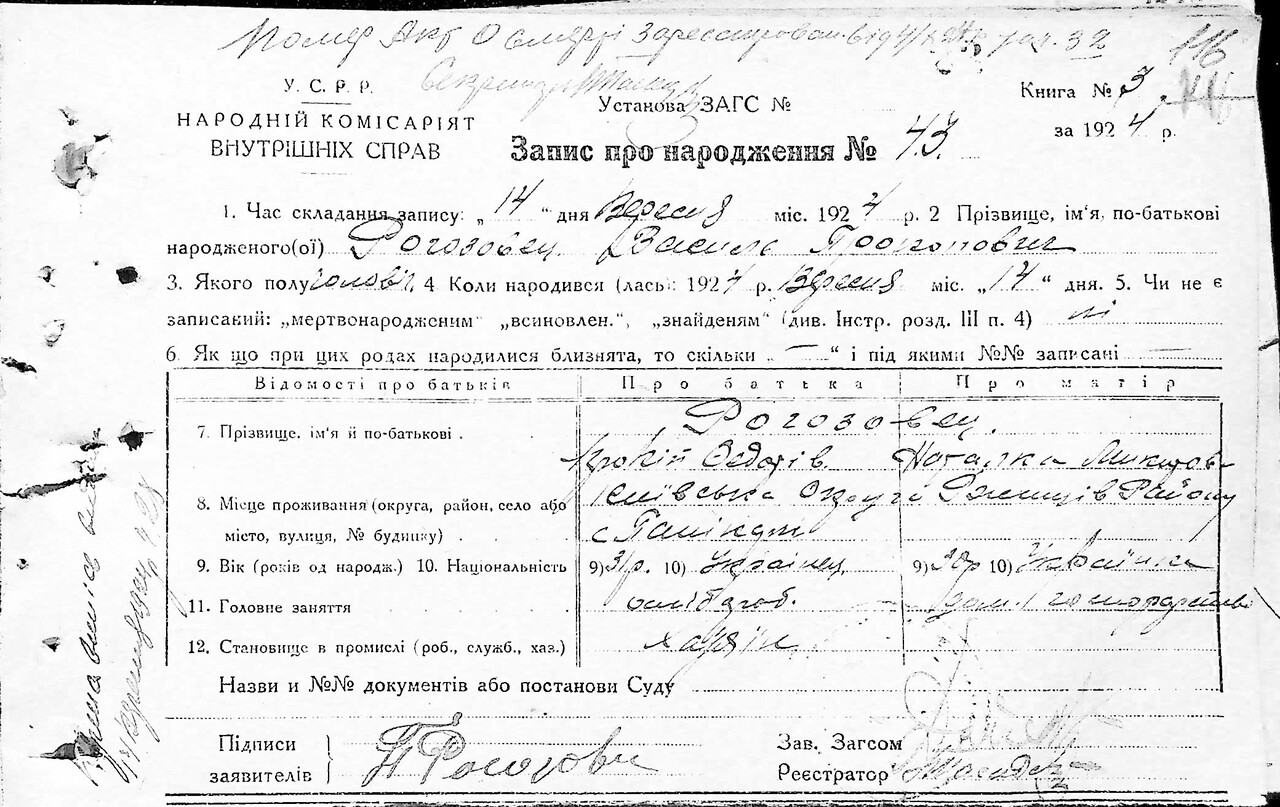 Помер Акт О смерті Зареєстрован. від 4/X 24 р за ч. 32
116
Секретар
У. С. Р. Р.
НАРОДНІЙ КОМІСАРІЯТ
ВНУТРІШНІХ СПРАВ
Установа ЗАГС №
Книга № 3.
за 1924 р.
Запис про народження № 43.
1. Час складання запису: „14“ дня Вересня міс. 1924 р. 2 Прізвище, ім'я, по-батькові
народженого(ої) Рогозовец Василь Прокопович
3. Якого полу чоловіч. 4 Коли народився (лась): 1924 р. Вересня міс. „14“ дня. 5. Чи не є
записакий: „мертвонародженим“ „всиновлен.“, „знайденям“ (див. Інстр. розд. III п. 4) ні
6. Як що при цих родах народилися близнята, то скільки „—“ і під якими №№ записані —
Відомості про батьків Про батька Про матір
7. Прізвище. ім'я й по-батькові . Рогозовец.
Прокій Федорів. Наталка
8. Місце проживання (округа, район, село або Київська Округа Району
місто, вулиця, № будинку) . с
9. Вік (років од народж.) 10. Національність 9) 31р. 10) Українец 9) 30р 10) Українка
11. Головне заняття хлібороб. дом. господарстві
12. Становище в промислі (роб., служб., хаз.) хазяін
Назви и №№ документів або постанови Суду
Підписи
заявителів П Рогозовец
Зав. Загсом
Реєстратор